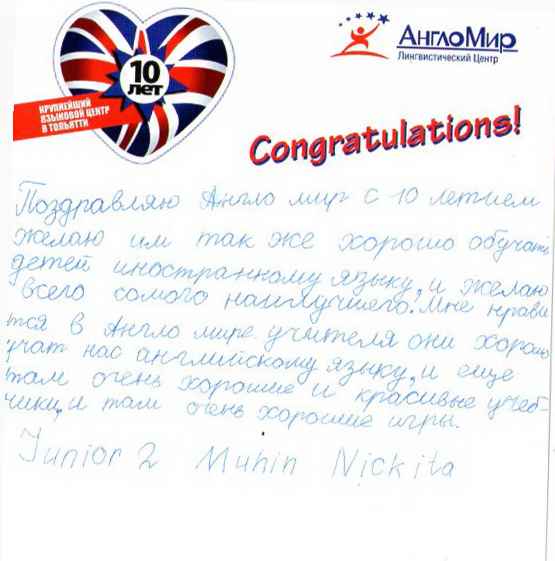 10
ЛЕТ
КРУПНЕЙШИЙ
ЯЗЫКОВОЙ ЦЕНТР
В ТОЛЬЯТТИ
АнглоМир
Лингвистический Центр
Congratulations!
Поздравляю Англо мир с 10 летием
желаю им так же хорошо обучать
детей иностранному языку, и желаю
всего самого наилучшего. Мне нрави
тся в Англо мире учителя они хорошо
учат нас английскому языку, и еще
там очень хорошие и красивые учеб-
чики, и там очень хорошие игры.
Junior 2 Muhin Nickita